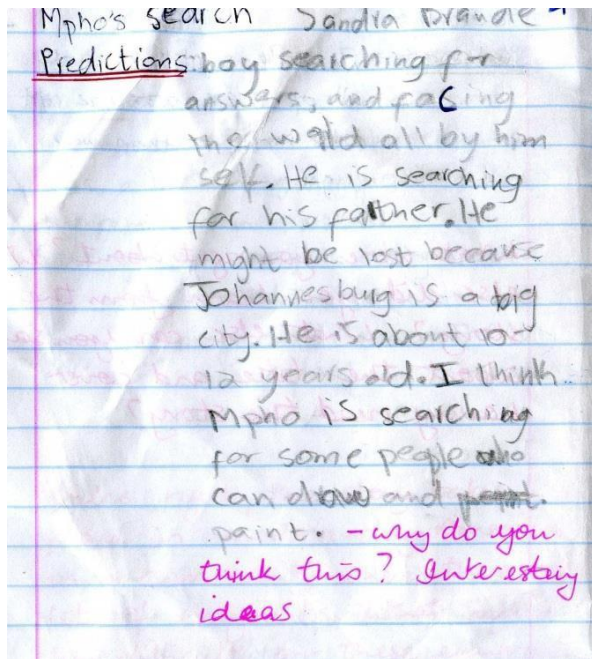 Mpho's search Sandra Braude
Predictions: boy searching for
answers, and facing
the world all by him
self. He is searching
for his farther. He
might be lost because
Johannesburg is a big
city. He is about 10-
12 years old. I think
Mpho is searching
for some people who
can draw and paint.
paint. - why do you
think this? Interesting
ideas